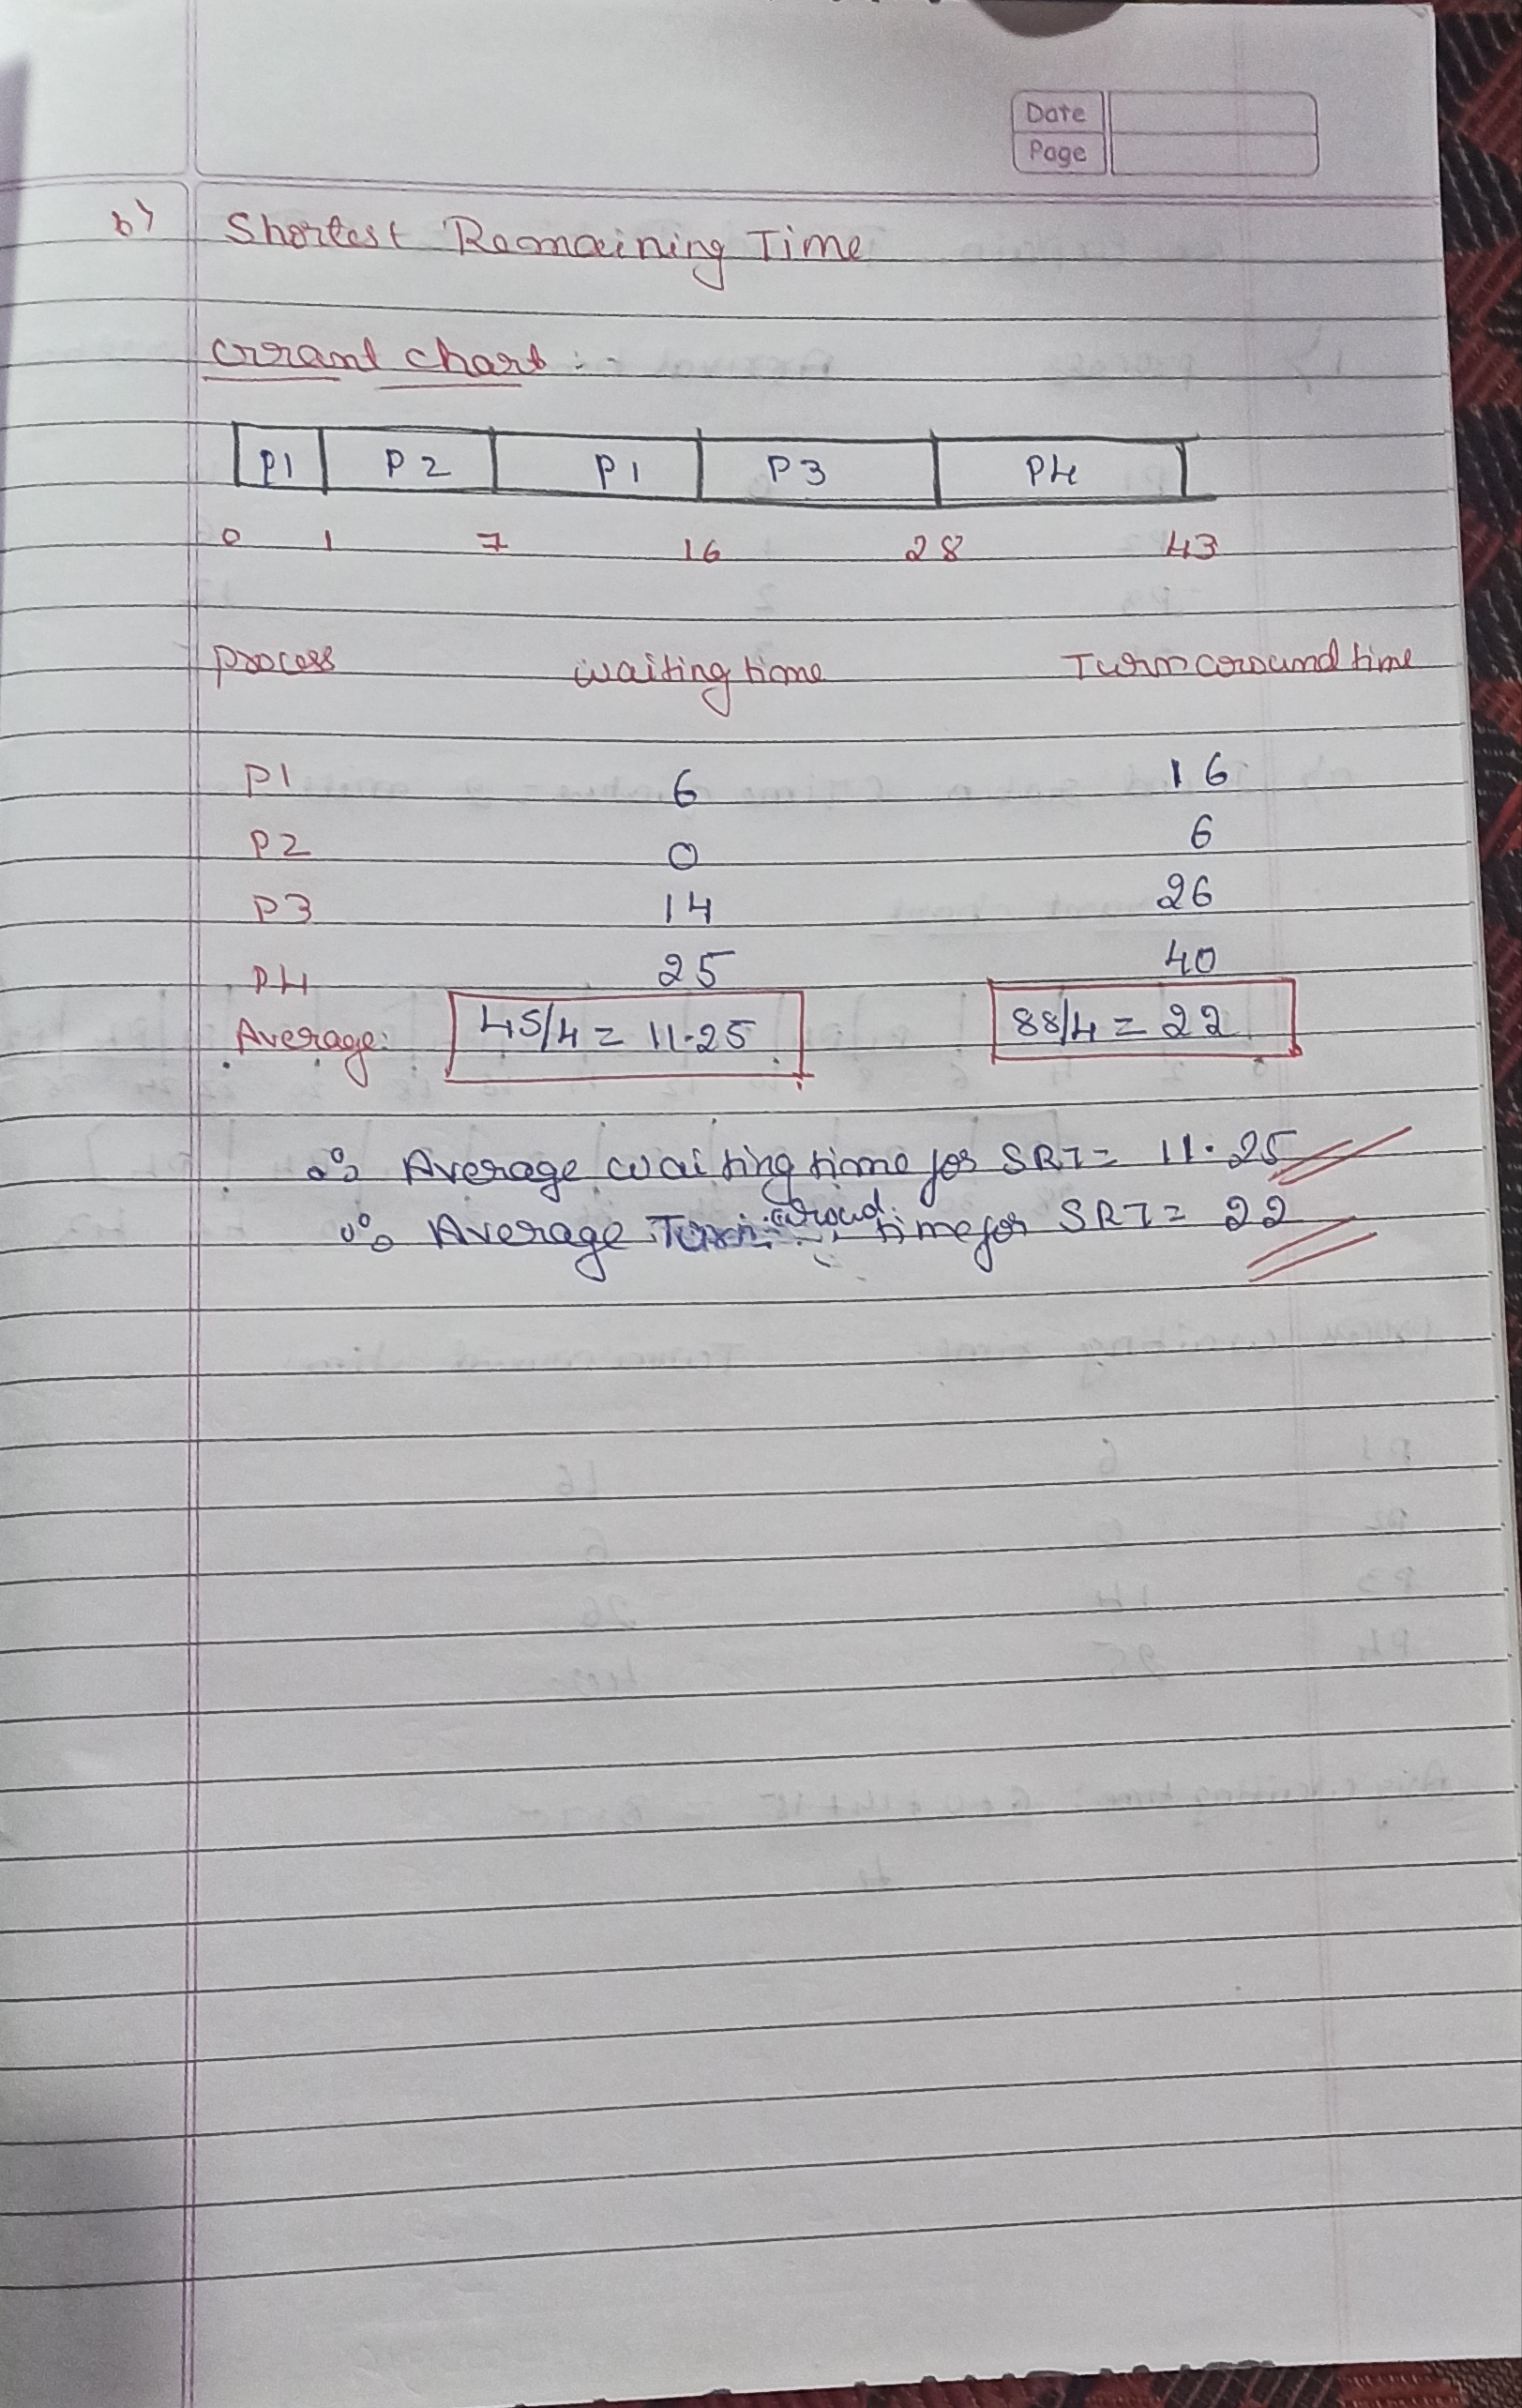 Date
Page
b) Shortest Remaining Time
Grant chart :-
P1 P2 P1 P3 P4
0 1 7 16 28 43
process waiting time Turn around time
P1 6 16
P2 0 6
P3 14 26
P4 25 40
Average: 45/4 = 11.25 88/4 = 22
∴ Average waiting time for SRT = 11.25
∴ Average Turn around time for SRT = 22